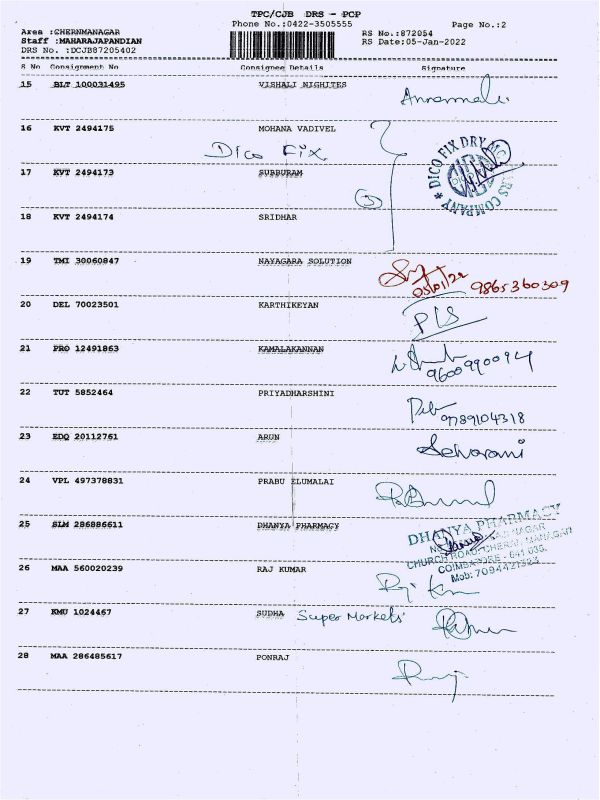 TPC/CJB DRS - PCP
Phone No.:0422-3505555 Page No.:2
Area :CHERNMANAGAR RS No.:872054
Staff :MAHARAJAPANDIAN RS Date:05-Jan-2022
DRS No. :DCJB87205402
S No Consignment No Consignee Details Signature
15 BLT 100031495 VISHALI NIGHITES
16 KVT 2494175 MOHANA VADIVEL
Dico Fix
17 KVT 2494173 SUBBURAM
DICO FIX DRY COMPANY
3
18 KVT 2494174 SRIDHAR
19 TMI 30060847 NAYAGARA SOLUTION
05/01/22 9865360309
20 DEL 70023501 KARTHIKEYAN
P/S
21 PRO 12491863 KAMALAKANNAN
9600990094
22 TUT 5852464 PRIYADHARSHINI
9789104318
23 EDQ 20112761 ARUN
24 VPL 497378831 PRABU ELUMALAI
25 SLM 286886611 DHANYA PHARMACY
DHANYA PHARMACY
NAGAR
CHURCH ROAD, CHERAN MANAGAR
COIMBATORE - 641 035.
Mob: 7094421323
26 MAA 560020239 RAJ KUMAR
27 KMU 1024467 SUDHA Super Markets
28 MAA 286485617 PONRAJ